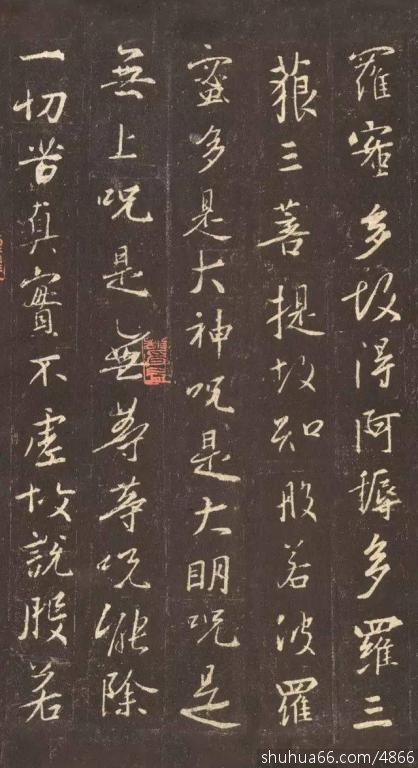 羅蜜多故得阿耨多羅三
藐三菩提故知般若波羅
蜜多是大神呪是大明呪是
無上呪是無等等呪能除
一切苦真實不虛故說般若
shuhua66.com/4866